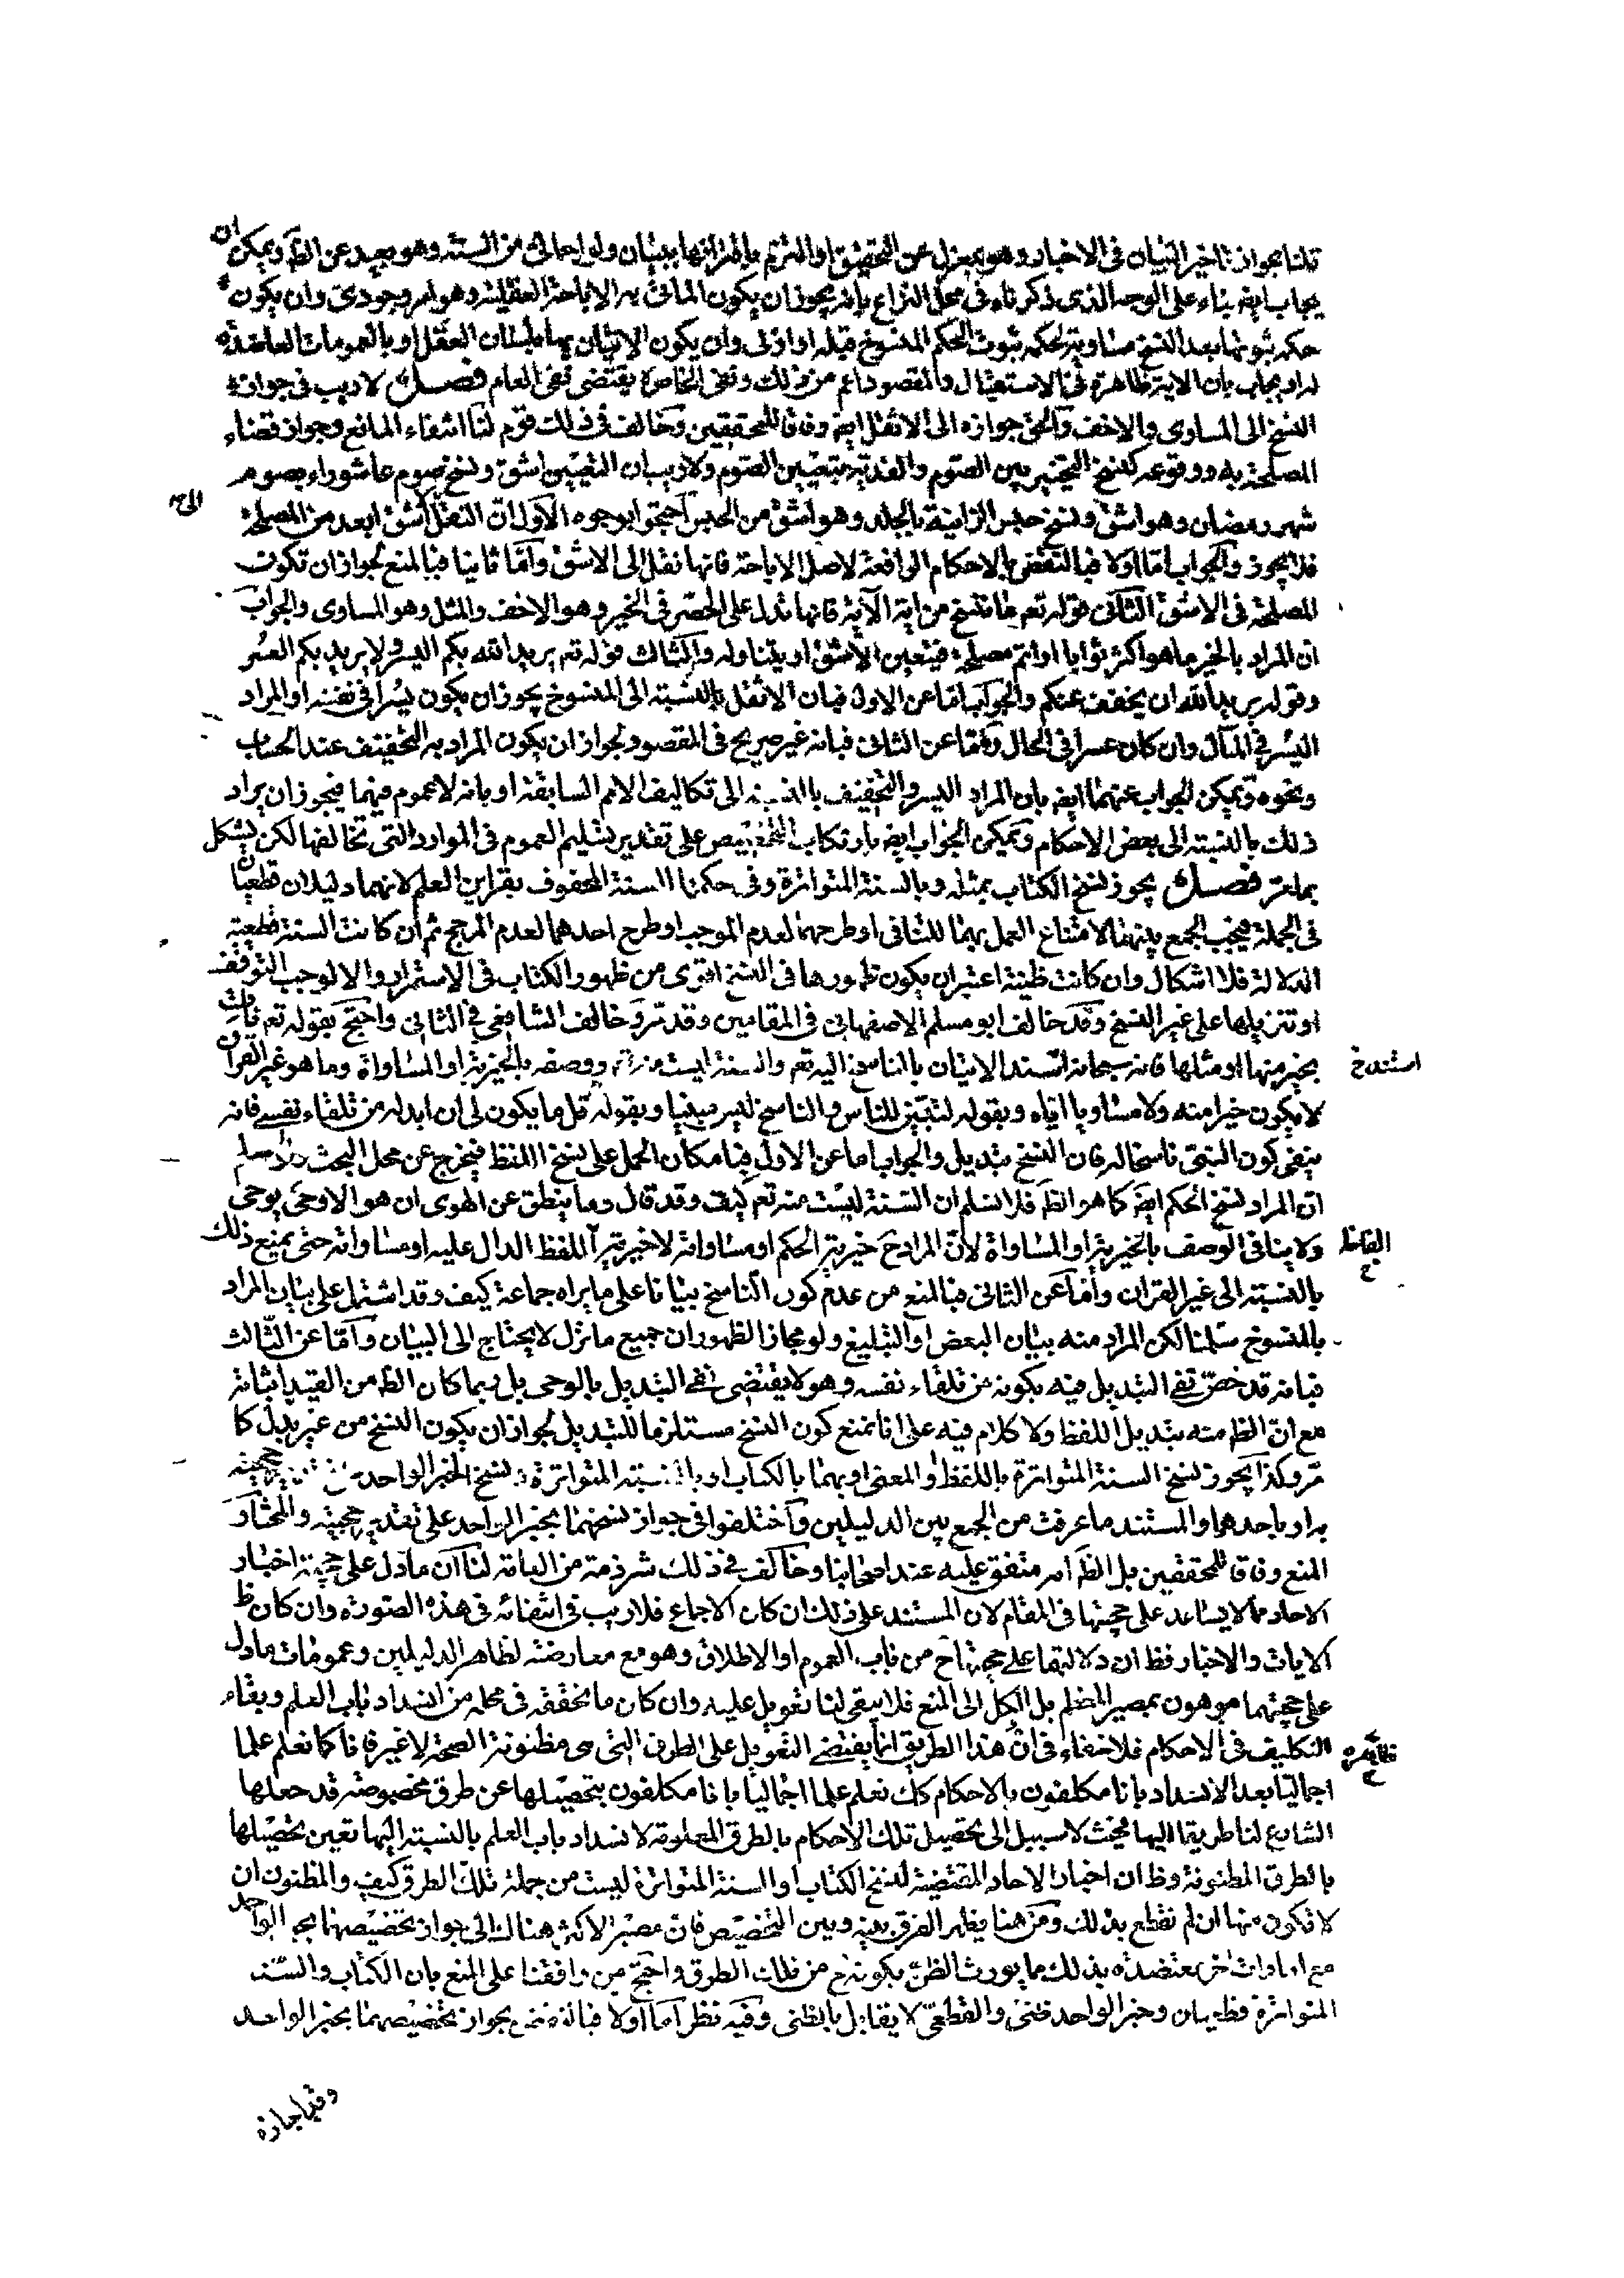 قلنا بجواز تاخير البيان فى الاخبار وهو بمعزل عن التحقيق او التزم باقترانها ببيان ولو اجمالى من السنة وهو بعيد عن الظ ويمكن ان
يجاب ايضا بناء على الوجه الذى ذكرناه فى محل النزاع بانه يجوز ان يكون الماتى به الاباحة العقلية وهو امر وجودى وان يكون
حكمه ثبوتها بعد النسخ مساوية لحكمة ثبوت الحكم المنسوخ قبله او اولى وان يكون الاتيان بها بلسان العقل او بالعمومات العاضدة
له او يجاب بان الاية ظاهرة فى الاستعمال والمقصود اعم من ذلك ونفى الخاص لا يقتضى نفى العام فصل لا ريب فى جواز
النسخ الى المساوى والاخف والحق جوازه الى الاثقل ايضا وفاقا للمحققين وخالف فى ذلك قوم لنا انتفاء المانع وجواز قضاء
المصلحة به ووقوعه كنسخ التخيير بين الصوم والفدية بتعيين الصوم ولا ريب ان التعيين اشق ونسخ صوم عاشوراء بصوم
شهر رمضان وهو اشق ونسخ حبس الزانية بالجلد وهو اشق من الحبس احتجوا بوجوه الاول ان النقل الى الاشق ابعد من المصلحة
فلا يجوز والجواب اما اولا فبالنقض بالاحكام الرافعة لاصل الاباحة فانها نقل الى الاشق واما ثانيا فبالمنع لجواز ان تكون
المصلحة فى الاشق الثانى قوله تعم ما ننسخ من اية الآية فانها تدل على الحصر فى الخير وهو الاخف والمثل وهو المساوى والجواب
ان المراد بالخير ما هو اكثر ثوابا او اتم مصلحة فيتعين الاشق او يتناوله والثالث قوله تعم يريد الله بكم اليسر ولا يريد بكم العسر
وقوله يريد الله ان يخفف عنكم والجواب اما عن الاول فبان الاثقل بالنسبة الى المنسوخ يجوز ان يكون يسرا فى نفسه او المراد
اليسر فى المآل وان كان عسرا فى الحال واما عن الثانى فبانه غير صريح فى المقصود لجواز ان يكون المراد به التخفيف عند الحساب
ونحوه ويمكن الجواب عنهما ايضا بان المراد اليسر والتخفيف بالنسبة الى تكاليف الامم السابقة او بانه لا عموم فيهما فيجوز ان يراد
ذلك بالنسبة الى بعض الاحكام ويمكن الجواب ايضا بارتكاب التخصيص على تقدير تسليم العموم فى الموارد التى تخالفها لكن يشكل
بما مر فصل يجوز نسخ الكتاب بمثله وبالسنة المتواترة وفى حكمها السنة المحفوفة بقراين العلم لانهما دليلان قطعيان
فى الجملة فيجب الجمع بينهما لامتناع العمل بهما للتنافى او طرحهما لعدم الموجب او طرح احدهما لعدم المرجح ثم ان كانت السنة قطعية
الدلالة فلا اشكال وان كانت ظنية اعتبر ان يكون ظهورها فى النسخ اقوى من ظهور الكتاب فى الاستمرار والا لوجب التوقف
او تنزيلها على غير النسخ وقد خالف ابو مسلم الاصفهانى فى المقامين وقد مر وخالف الشافعى فى الثانى واحتج بقوله تعم نات
بخير منها او مثلها فانه سبحانه اسند الاتيان بالناسخ اليه تعم والسنة ليست منه ووصفه بالخيرية او المساواة وما هو غير القران
لا يكون خيرا منه ولا مساويا اياه وبقوله لتبين للناس والناسخ ليس مبينا وبقوله قل ما يكون لى ان ابدله من تلقاء نفسى فانه
ينفى كون النبى ناسخا له فان النسخ تبديل والجواب اما عن الاول فبامكان الحمل على نسخ اللفظ فيخرج عن محل البحث ولو سلم
ان المراد نسخ الحكم ايضا كما هو الظ فلا نسلم ان السنة ليست منه تعم كيف وقد قال وما ينطق عن الهوى ان هو الا وحى يوحى
ولا ينافى الوصف بالخيرية او المساواة لان المراد ح خيرية الحكم او مساواته لا خيرية اللفظ الدال عليه او مساواته حتى يمنع ذلك
بالنسبة الى غير القران واما عن الثانى فبالمنع من عدم كون الناسخ بيانا على ما يراه جماعة كيف وقد اشتمل على بيان المراد
بالمنسوخ سلمنا لكن المراد منه بيان البعض او التبليغ ولو مجازا لظهور ان جميع ما نزل لا يحتاج الى البيان واما عن الثالث
فبانه قد خص نفى التبديل فيه بكونه من تلقاء نفسه وهو لا يقتضى نفى التبديل بالوحى بل ربما كان الظ من القيد اثباته
مع ان الظ منه تبديل اللفظ ولا كلام فيه على انا نمنع كون النسخ مستلزما للتبديل لجواز ان يكون النسخ من غير بدل كما
مر وكذا يجوز نسخ السنة المتواترة باللفظ او المعنى او بهما بالكتاب او بالسنة المتواترة ونسخ الخبر الواحد حجيته
يراد باحدهما والمستند ما عرفت من الجمع بين الدليلين واختلفوا فى جواز نسخهما بخبر الواحد على تقدير حجيته والمختار
المنع وفاقا للمحققين بل الظ انه متفق عليه عند اصحابنا وخالف فى ذلك شرذمة من العامة لنا ان ما دل على حجية اخبار
الاحاد مما لا يساعد على حجيتها فى المقام لان المستند على ذلك ان كان الاجماع فلا ريب فى انتفائه فى هذه الصورة وان كان ظ
الايات والاخبار فظ ان دلالتها على حجيتها ح من باب العموم او الاطلاق وهو مع معارضته لظاهر الدليلين وعمومات ما دل
على حجيتهما موهون بمصير المعظم بل الكل الى المنع فلا يبقى لنا تعويل عليه وان كان ما نحققه فى محله من انسداد باب العلم وبقاء
التكليف فى الاحكام فلا خفاء فى ان هذا الطريق انما يقتضى التعويل على الطرق التى هى مظنونة الصحة لا غير فانا كما نعلم علما
اجماليا بعد الانسداد بانا مكلفون بالاحكام كك نعلم علما اجماليا بانا مكلفون بتحصيلها عن طرق مخصوصة قد جعلها
الشارع لنا طريقا اليها فحيث لا سبيل الى تحصيل تلك الاحكام بالطرق المعلومة لانسداد باب العلم بالنسبة اليها تعين تحصيلها
بالطرق المظنونة وظ ان اخبار الاحاد المقتضية لنسخ الكتاب او السنة المتواترة ليست من جملة تلك الطرق كيف والمظنون ان
لا تكون منها ان لم نقطع بذلك ومن هنا يظهر الفرق بينه وبين التخصيص فان مصير الاكثر هناك الى جواز تخصيصهما بخبر الواحد
مع امارات اخر معتضدة بذلك مما يورث الظن بكونه ح من تلك الطرق واحتج من وافقنا على المنع بان الكتاب والسنة
المتواترة قطعيان وخبر الواحد ظنى والقطعى لا يقابل بالظنى وفيه نظر اما اولا فبانه بجواز تخصيصهما بخبر الواحد
الى
اسند خ
الفاظ
خ
وقد اجازه